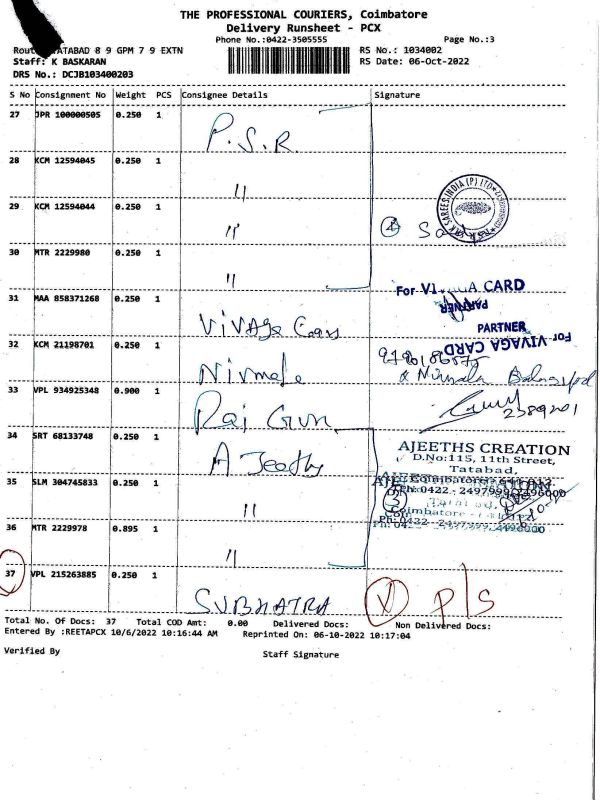 THE PROFESSIONAL COURIERS, Coimbatore
Delivery Runsheet - PCX
Phone No.:0422-3505555 Page No.:3
TATABAD 8 9 GPM 7 9 EXTN RS No.: 1034002
Staff: K BASKARAN RS Date: 06-Oct-2022
DRS No.: DCJB103400203
S No Consignment No Weight PCS Consignee Details Signature
27 JPR 100000505 0.250 1 P.S.R.
28 KCM 12594045 0.250 1 "
29 KCM 12594044 0.250 1 " 4
30 MTR 2229980 0.250 1 "
For CARD
PARTNER
31 MAA 858371268 0.250 1 VIVAGA
PARTNER
For VIVAGA CARD
32 KCM 21198701 0.250 1 Nirmala
Nirmala
33 VPL 934925348 0.900 1 Raj
34 SRT 68133748 0.250 1 A Jeeths
AJEETHS CREATION
D.No:115, 11th Street,
Tatabad,
35 SLM 304745833 0.250 1 " 3
36 MTR 2229978 0.895 1 "
37 VPL 215263885 0.250 1 SUBHATRA P/S
Total No. Of Docs: 37 Total COD Amt: 0.00 Delivered Docs: Non Delivered Docs:
Entered By :REETAPCX 10/6/2022 10:16:44 AM Reprinted On: 06-10-2022 10:17:04
Verified By Staff Signature